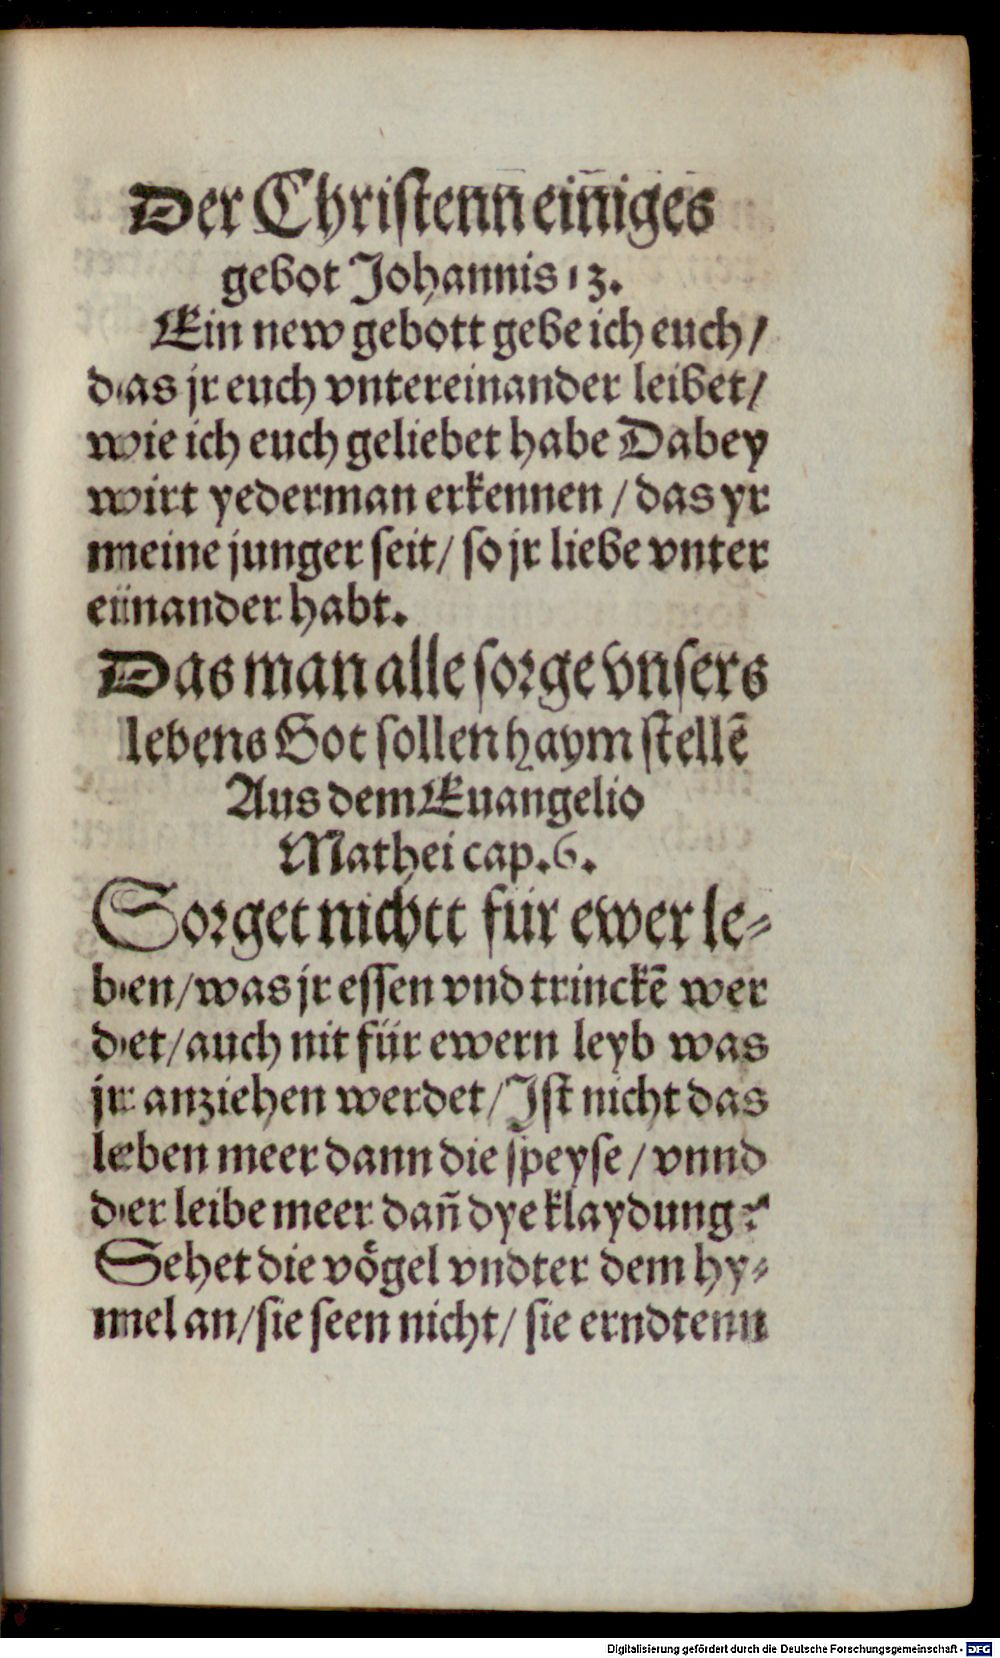 Der Christenn einiges
gebot Johannis 13.
Ein new gebott gebe ich euch/
das jr euch vntereinander leibet/
wie ich euch geliebet habe Dabey
wirt yederman erkennen/ das yr
meine junger seit/ so jr liebe vnter
einander habt.
Das man alle sorge vnsers
lebens Got sollen haym stellē
Aus dem Euangelio
Mathei cap. 6.
Sorget nichtt für ewer le⸗
ben/ was jr essen vnd trinckē wer
det/ auch nit für ewern leyb was
jr anziehen werdet/ Jst nicht das
leben meer dann die speyse/ vnnd
der leibe meer dan̄ dye klaydung?
Sehet die vögel vndter dem hy⸗
mel an/ sie seen nicht/ sie erndtenn
Digitalisierung gefördert durch die Deutsche Forschungsgemeinschaft - DFG